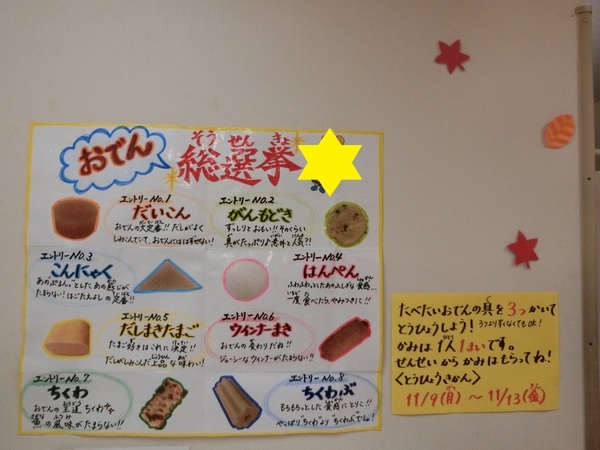 おでん
総選挙
そう せん きょ
エントリーNo.1
だいこん
おでんの大定番!! だしがよく
しみこんでいて、おでんにははずせない!
エントリーNo.2
がんもどき
ずっしりとおもい!! そのくらい
具がたっぷり♪意外と人気?!
エントリーNo.3
こんにゃく
あのぷよん。とした あの感じが
たまらない! はごたえよしの定番!!
エントリーNo.4
はんぺん
ふわふわっとしたあのふしぎな食感...
一度食べたら、やみつきに!!
エントリーNo.5
だしまきたまご
たまご好きはこれに決定!!
だしがしみこんだ上品な味わい!
エントリーNo.6
ウィンナーまき
おでんの変わりだね!!
ジューシーなウィンナーがたまらない!!
エントリーNo.7
ちくわ
おでんの王道ちくわ
魚の風味がたまらない!!
エントリーNo.8
ちくわぶ
もちもちっとした食感にとりこ!!
やっぱり、ちくわよりちくわぶでしょ!
たべたいおでんの具を3つかいて
とうひょうしよう! 3つよりすくなくてもOK!
かみは1人1まいです。
せんせいからかみはもらってね!
〈とうひょうきかん〉
11/9(月) ～ 11/13(金)